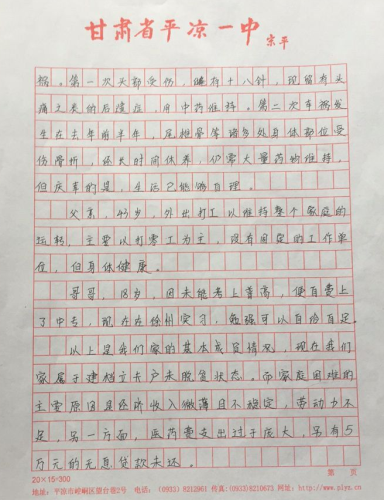 甘肃省平凉一中
宋平
祸。第一次头部受伤，缝有十八针，现留有头
痛之类的后遗症，用中药维持。第二次车祸发
生在去年前半年，尾椎骨等诸多处身体部位受
伤骨折，经长时间休养，仍需大量药物维持。
但庆幸的是，生活已能够自理。
父亲，45岁，外出打工以维持整个家庭的
运转，主要以打零工为主，没有固定的工作单
位，但身体健康。
哥哥，18岁，因未能考上普高，便自费上
了中专，现在在徐州实习，勉强可以自给自足。
以上是我们家的基本成员情况，现在我们
家属于建档立卡户未脱贫状态。而家庭困难的
主要原因是经济收入微薄且不稳定，劳动力不
足，另一方面，医药费支出过于庞大，另有5
万元的无息贷款未还。
20×15=300 第 页
地址：平凉市崆峒区柳台巷2号 电话：(0933) 8213961 传真：(0933) 8210673 网址：http://www.plyz.cn